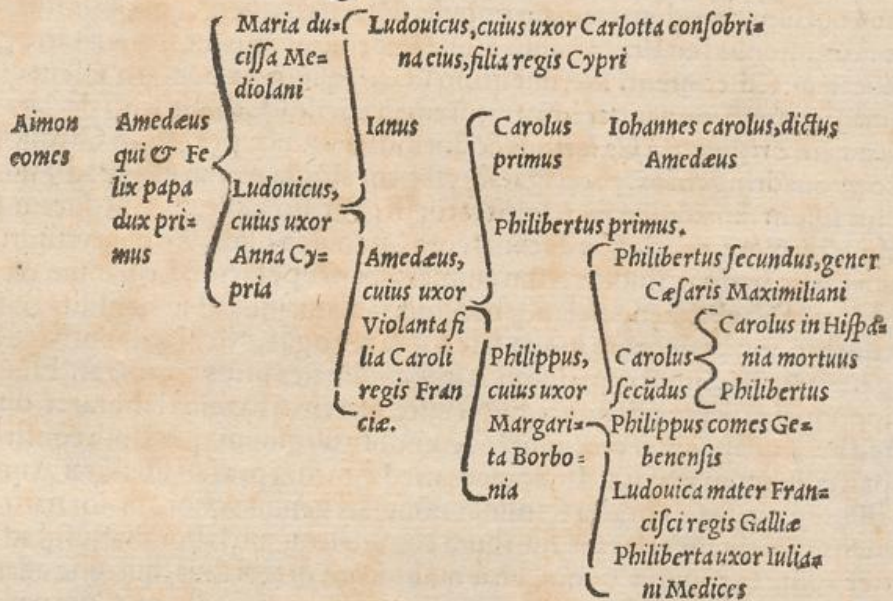 Aimon
comes
Amedæus
qui & Fe
lix papa
dux pri=
mus
Maria du=
cissa Me=
diolani
Ludouicus,
cuius uxor
Anna Cy=
pria
Ludouicus, cuius uxor Carlotta consobri=
na eius, filia regis Cypri
Ianus
Amedæus,
cuius uxor
Violanta fi
lia Caroli
regis Fran
ciæ.
Carolus
primus
Iohannes carolus, dictus
Amedæus
Philibertus primus.
Philippus,
cuius uxor
Margari=
ta Borbo=
nia
Philibertus secundus, gener
Cæsaris Maximiliani
Carolus
secũdus
Carolus in Hispa=
nia mortuus
Philibertus
Philippus comes Ge=
benensis
Ludouica mater Fran=
cisci regis Galliæ
Philiberta uxor Iulia=
ni Medices